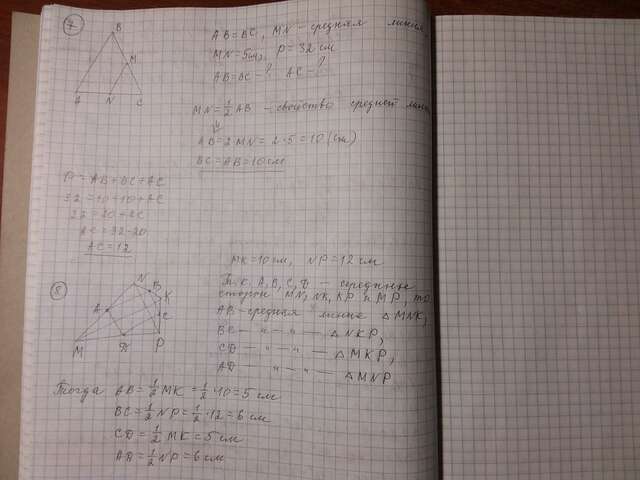 7
B
M
A
N
C
AB = BC, MN - средняя линия,
MN = 5см, P = 32 см
AB = BC - ? AC - ?
MN = 1/2 AB - свойство средней линии
⇓
AB = 2MN = 2·5 = 10 (см)
BC = AB = 10 см
P = AB + BC + AC
32 = 10 + 10 + AC
32 = 20 + AC
AC = 32 - 20
AC = 12
8
N
B
K
A
C
M
D
P
MK = 10 см, NP = 12 см
Т.к. A, B, C, D - середины
сторон MN, NK, KP и MP, то
AB - средняя линия △MNK,
BC — " — " — △NKP,
CD — " — " — △MKP,
AD — " — " — △MNP
Тогда AB = 1/2 MK = 1/2 · 10 = 5 см
BC = 1/2 NP = 1/2 · 12 = 6 см
CD = 1/2 MK = 5 см
AD = 1/2 NP = 6 см